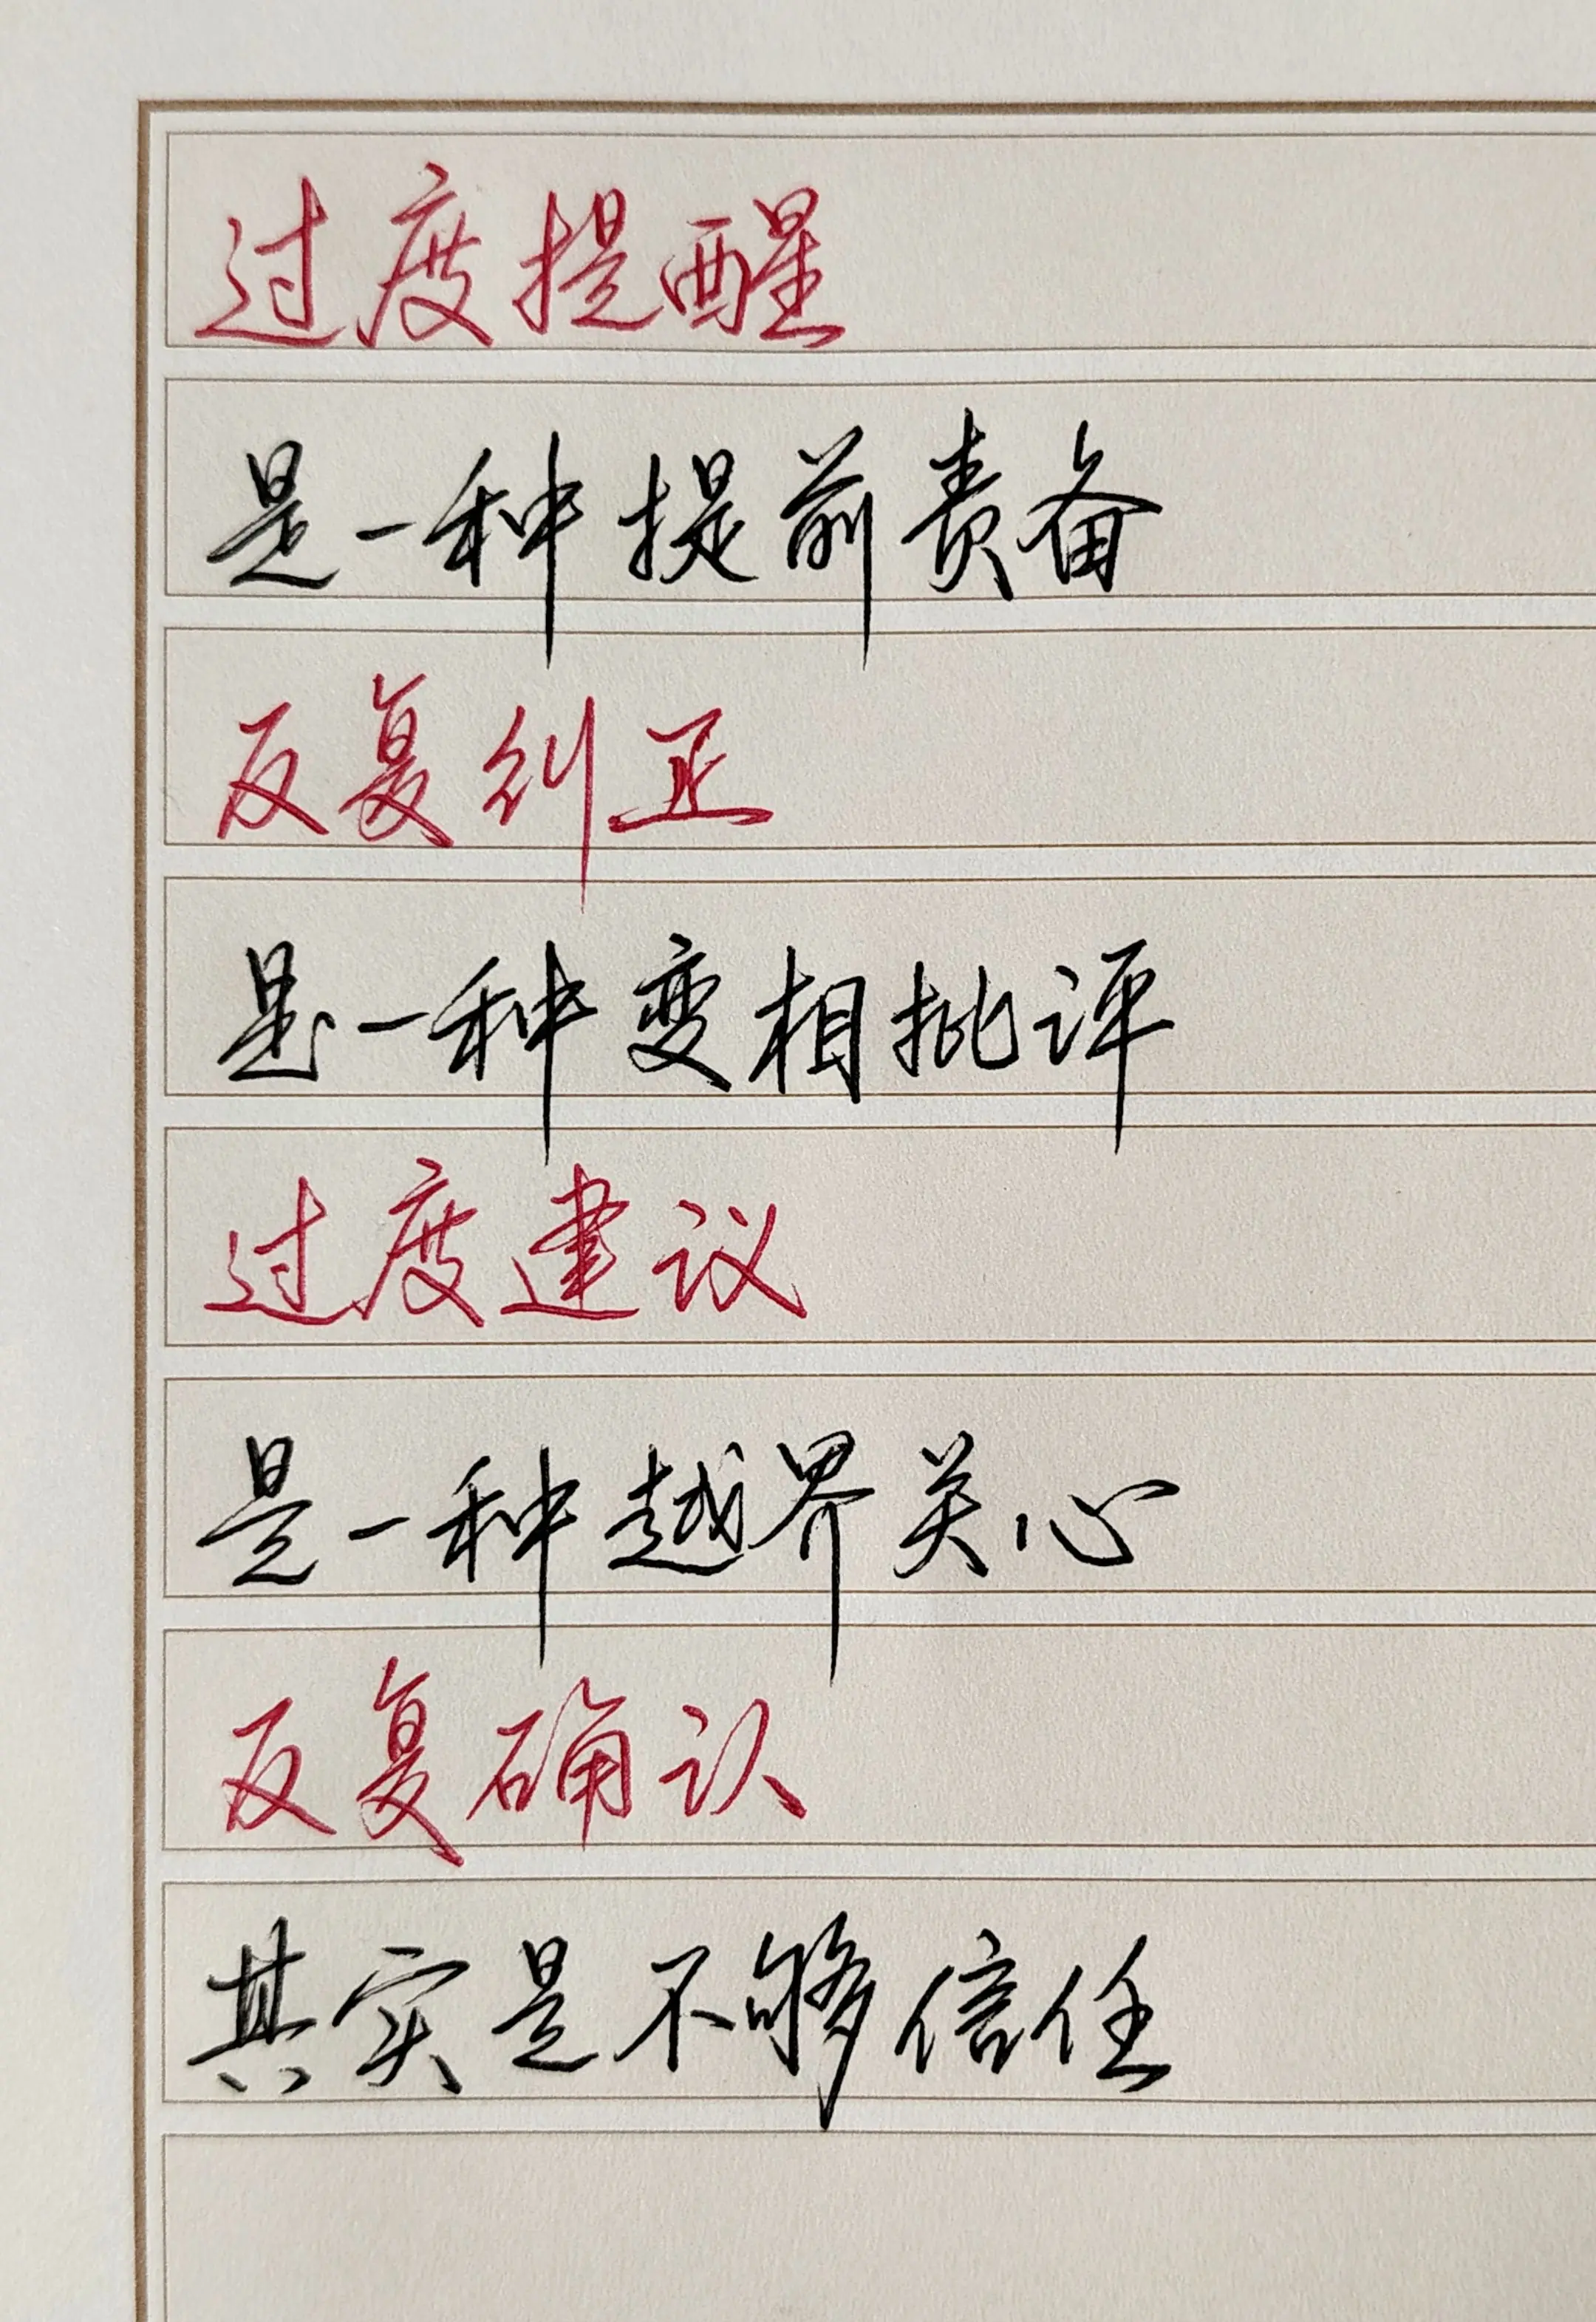 过度提醒
是一种提前责备
反复纠正
是一种变相批评
过度建议
是一种越界关心
反复确认
其实是不够信任